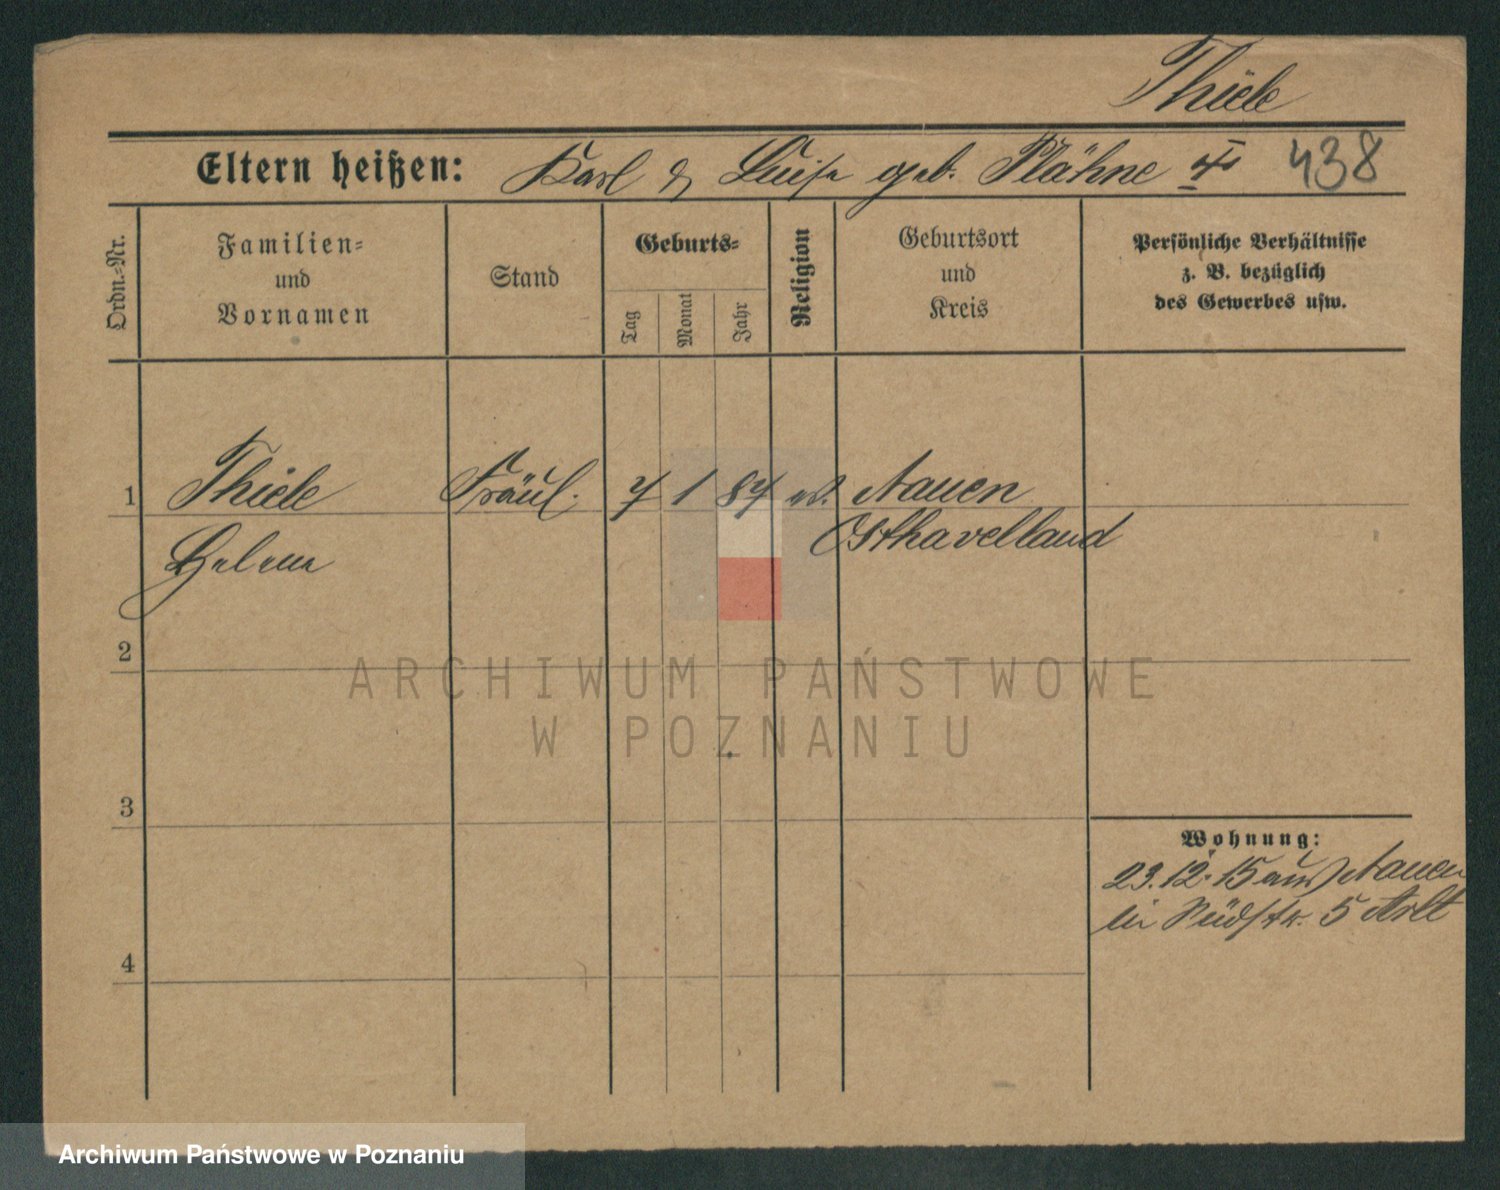 Thiele
Eltern heißen: Karl & Luise geb. Plähne
438
Ordn.-Nr.
Familien-
und
Vornamen
Stand
Geburts-
Tag
Monat
Jahr
Religion
Geburtsort
und
Kreis
Persönliche Verhältnisse
z. B. bezüglich
des Gewerbes usw.
1 Thiele Fräul. 7 1 87 ev. Nauen
Helene Osthavelland
2
ARCHIWUM PAŃSTWOWE
W POZNANIU
3
Wohnung:
23.12.15 aus Nauen
in Südstr. 5 Arlt
4
Archiwum Państwowe w Poznaniu